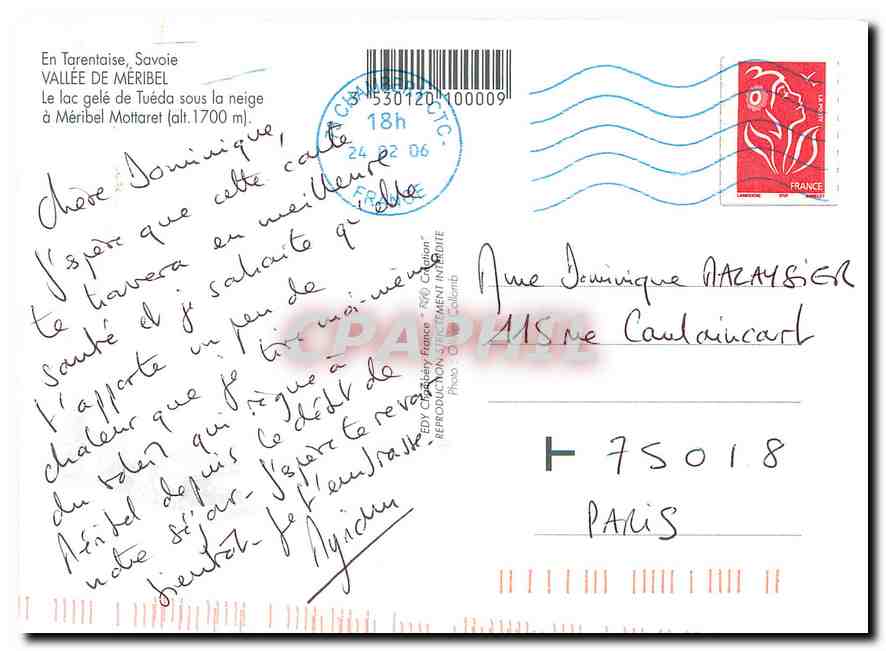 En Tarentaise, Savoie
VALLÉE DE MÉRIBEL
Le lac gelé de Tuéda sous la neige
à Méribel Mottaret (alt.1700 m).
3 530120 100009
CHAMBERY CTC
18h
24 02 06
FRANCE
LA POSTE
FRANCE
Chère Dominique,
J'espère que cette carte
te trouvera en meilleure
santé et je souhaite qu'elle
t'apporte un peu de
chaleur que je tire moi-même
du soleil qui règne à
Méribel depuis le début de
notre séjour. J'espère te revoir
bientôt. Je t'embrasse.
EDY Chambéry France "Création"
REPRODUCTION STRICTEMENT INTERDITE
Photo : O. Collomb
CPAPHIL
Mme Dominique MALAYSIER
115 rue Caulaincourt
75018
PARIS